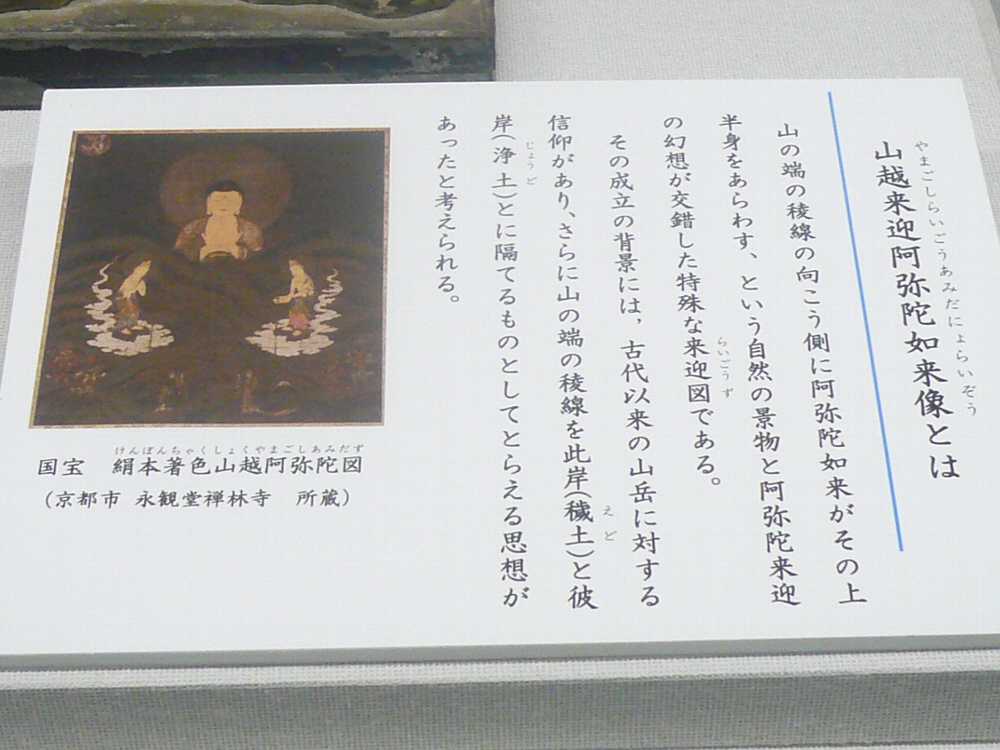 やまごしらいごうあみだにょらいぞう
山越来迎阿弥陀如来像とは
山の端の稜線の向こう側に阿弥陀如来がその上
半身をあらわす、という自然の景物と阿弥陀来迎
の幻想が交錯した特殊な来迎図である。
らいごうず
その成立の背景には，古代以来の山岳に対する
信仰があり、さらに山の端の稜線を此岸(穢土)と彼
えど
岸(浄土)とに隔てるものとしてとらえる思想が
じょうど
あったと考えられる。
けんぽんちゃくしょくやまごしあみだず
国宝　絹本著色山越阿弥陀図
(京都市 永観堂禅林寺　所蔵)